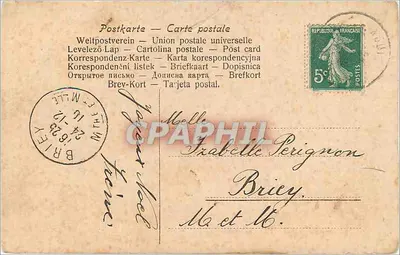 Postkarte - Carte postale
Weltpostverein - Union postale universelle
Levelező-Lap - Cartolina postale - Post card
Korrespondenz-Karte - Karta korespondencyjna
Korespondenční lístek - Briefkaart - Dopisnica
Открытое письмо - Дописна карта - Brefkort
Brev-Kort - Tarjeta postal.
REPUBLIQUE FRANÇAISE
5c
POSTES
BRIEY
16 25
24 12
10
Joyeux Noël
Irène
CPAPHIL
Melle
Izabelle Perignon
Briey
M et M.